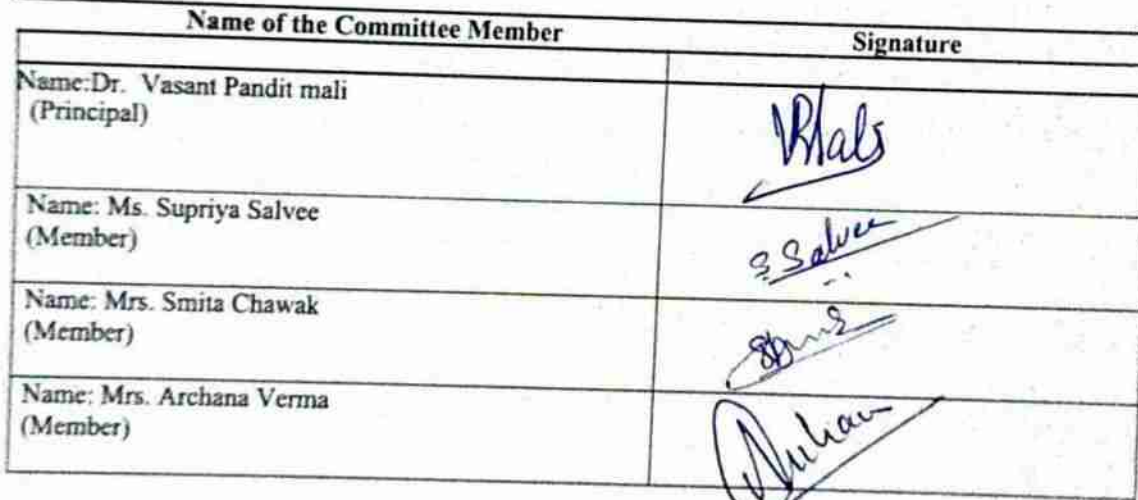 Name of the Committee Member Signature
Name:Dr. Vasant Pandit mali
(Principal)
VPMali
Name: Ms. Supriya Salvee
(Member)
S Salvee
Name: Mrs. Smita Chawak
(Member)
Name: Mrs. Archana Verma
(Member)